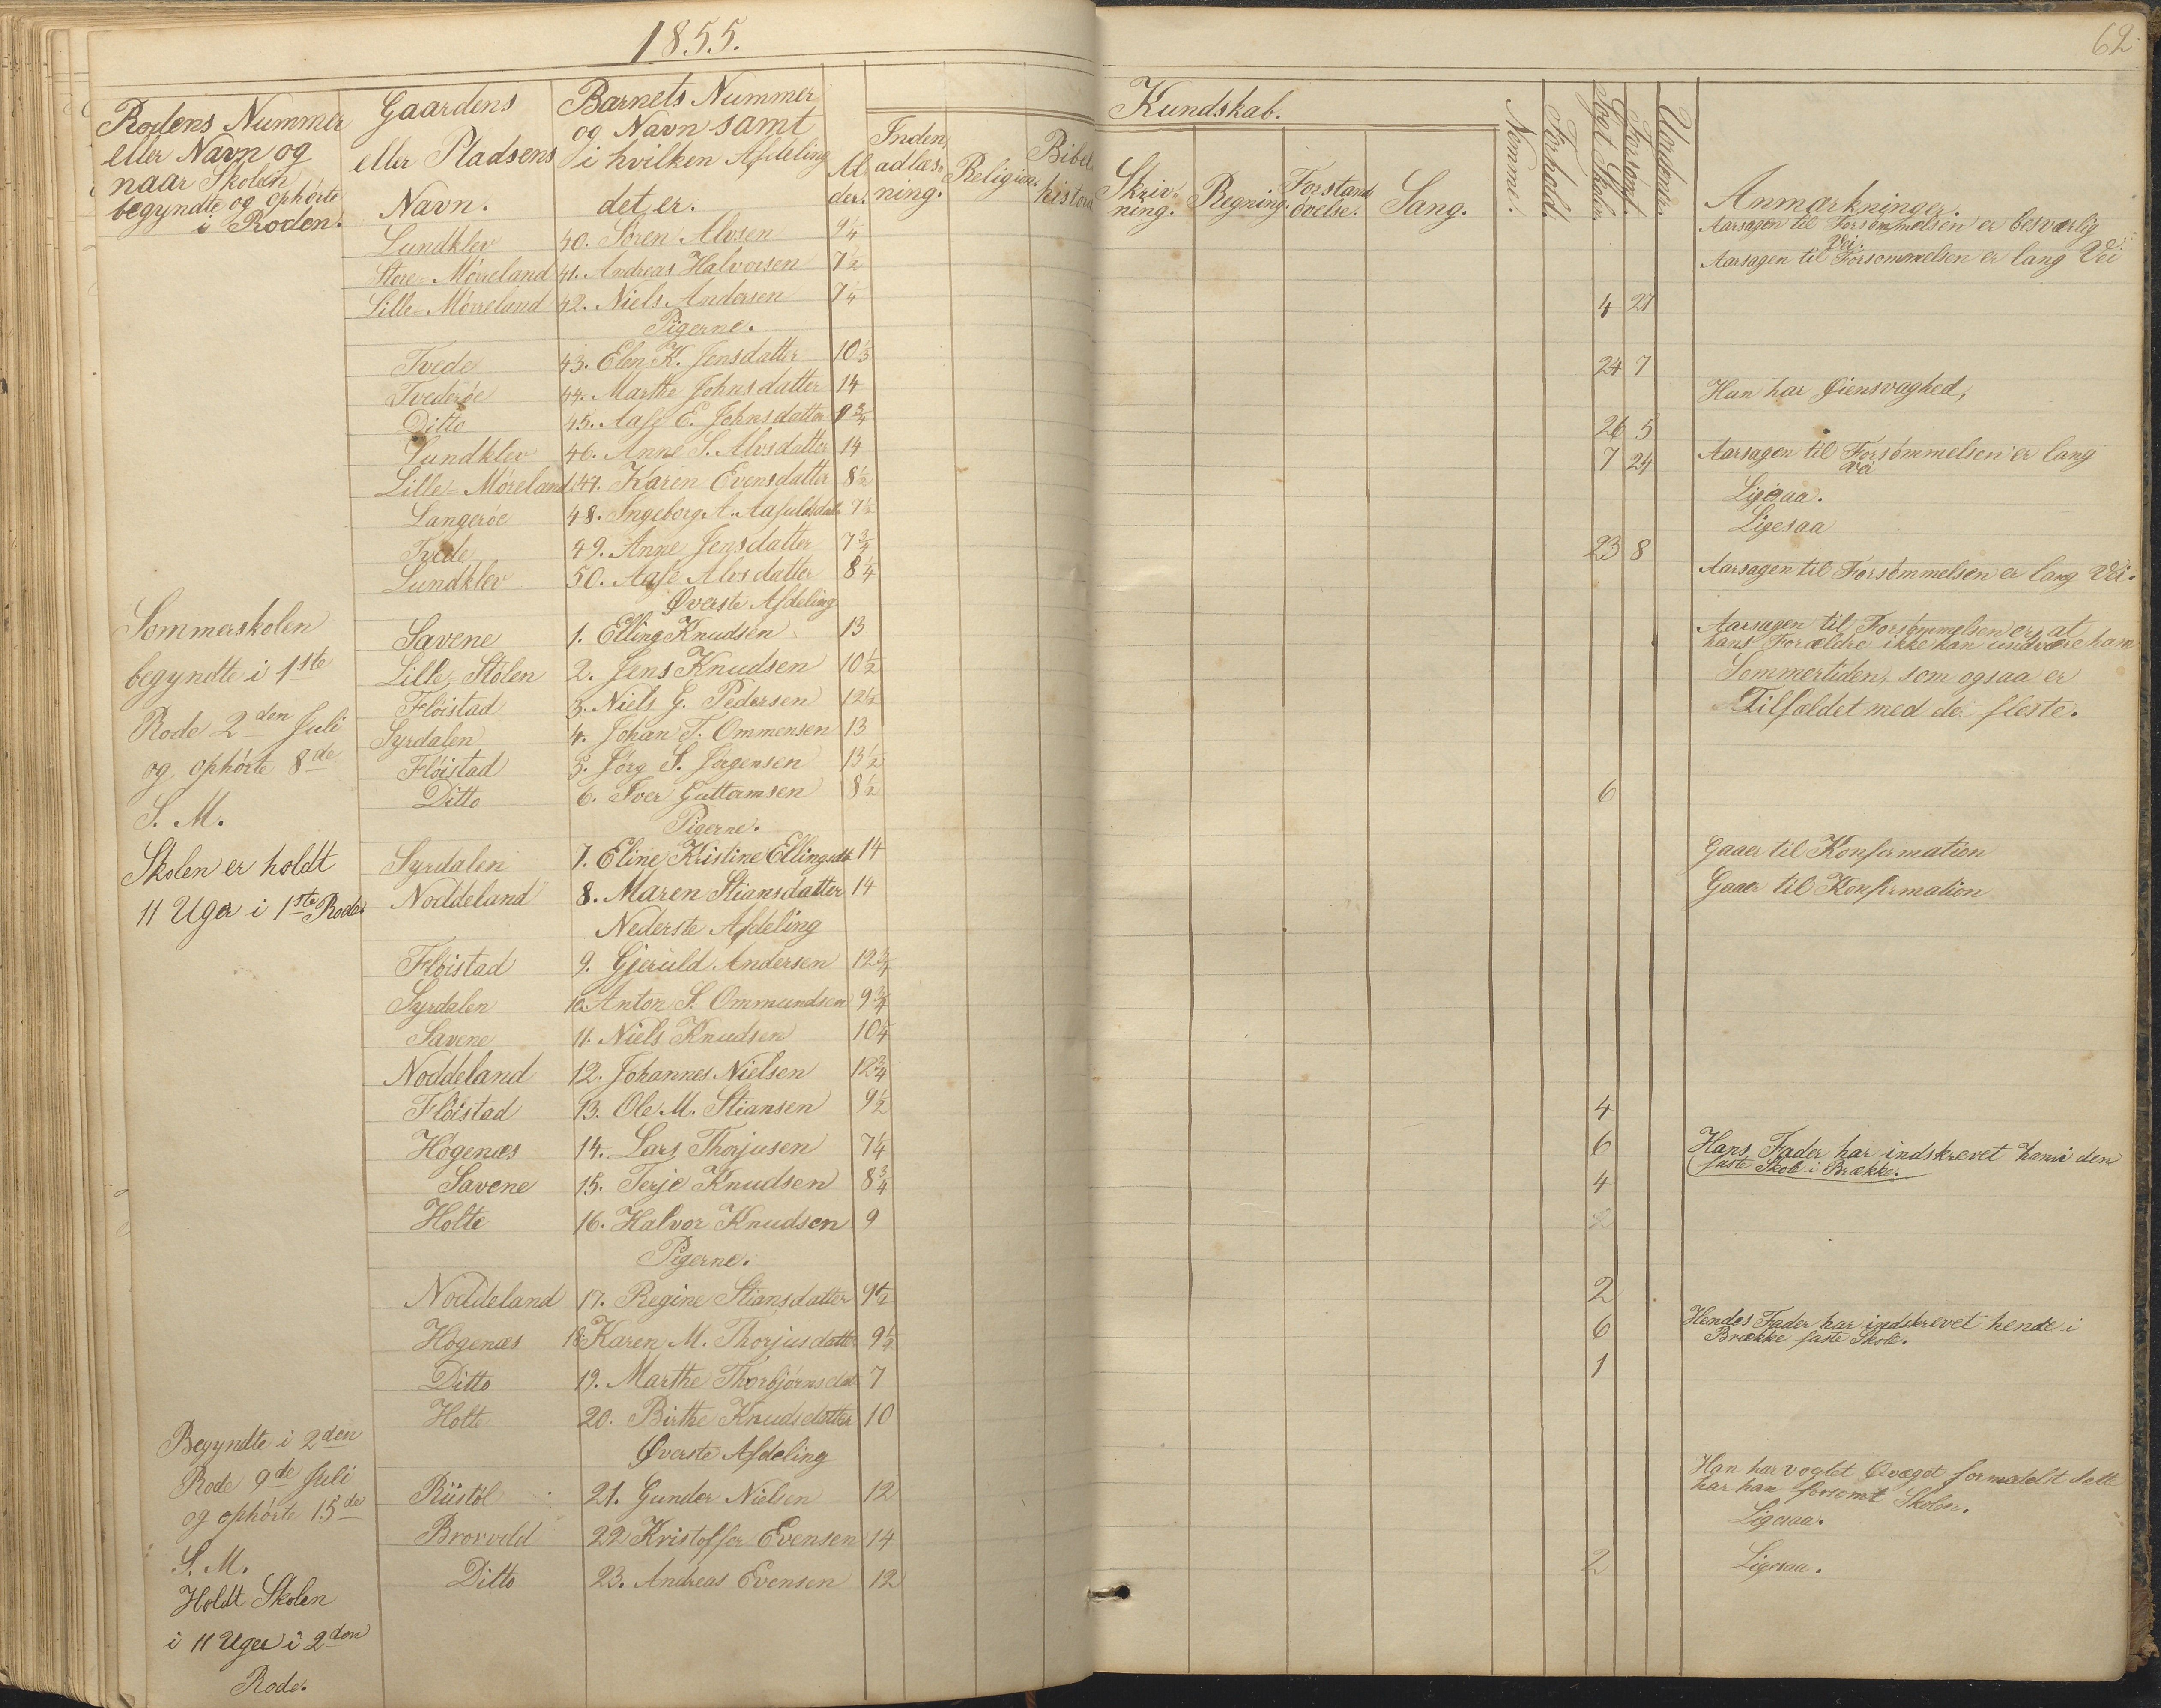 1855.
62
Rodens Nummer
eller Navn og
naar Skolen
begyndte og ophørte
i Roden.
Gaardens
eller Pladsens
Navn.
Barnets Nummer
og Navn samt
i hvilken Afdeling
det er.
Al
der.
Inden
adlæs-
ning.
Religion.
Bibel
historie
Kundskab.
Skriv-
ning.
Regning.
Forstands
øvelse.
Sang.
Nemme.
Forhold.
Søgt Skole.
Forsømt.
Uordentl.
Anmærkninger.
Lundklev 40. Søren Alvsen 9 1/4 Aarsagen til Forsømmelsen er besværlig
Vei.
Store-Mørreland 41. Andreas Halvorsen 7 1/2 Aarsagen til Forsømmelsen er lang Vei
Lille-Mørreland 42. Niels Andersen 7 1/4 4 27
Pigerne.
Tvede 43. Elen K. Jensdatter 10 1/3 24 7
Tvederøe 44. Marthe Johnsdatter 14 Hun har Øiensvaghed,
Ditto 45. Aase E. Johnsdatter 8 3/4 26 5
Lundklev 46. Anne S. Alvsdatter 14 7 24 Aarsagen til Forsømmelsen er lang
Vei
Lille-Møreland 47. Karen Evensdatter 8 1/2 Ligesaa.
Langerøe 48. Ingeborg A. 7 1/2 Ligesaa
Tvede 49. Anne Jensdatter 7 3/4 23 8
Lundklev 50. Aase Alvsdatter 8 1/4 Aarsagen til Forsømmelsen er lang Vei.
Øverste Afdeling
Sommerskolen
begyndte i 1ste
Rode 2den Juli
og ophørte 8de
S. M.
Skolen er holdt
11 Uger i 1ste Rode.
Savene 1. Elling Knudsen 13 Aarsagen til Forsømmelsen er, at
hans Forældre ikke kan undvære ham
Lille-Stølen 2. Jens Knudsen 10 1/2 Sommertiden, som ogsaa er
Fløistad 3. Niels G. Pedersen 12 1/2 Tilfældet med de fleste.
Syrdalen 4. Johan T. Ommensen 13
Fløistad 5. Jørg S. Jørgensen 13 1/2
Ditto 6. Iver Guttormsen 8 1/2 6
Pigerne.
Syrdalen 7. Eline Kristine Ellingsdt 14 Gaaer til Konfirmation
Noddeland 8. Maren Stiansdatter 14 Gaaer til Konfirmation
Nederste Afdeling
Fløistad 9. Gjeruld Andersen 12 3/4
Syrdalen 10. Anton S. Ommundsen 9 3/4
Savene 11. Niels Knudsen 10 1/4
Noddeland 12. Johannes Nielsen 12 3/4
Fløistad 13. Ole M. Stiansen 9 1/2 4
Høgenæs 14. Lars Thorjusen 7 1/4 6 Hans Fader har indskrevet ham i den
faste Skole i Brække.
Savene 15. Terje Knudsen 8 3/4 4
Holte 16. Halvor Knudsen 9 2
Pigerne.
Noddeland 17. Regine Stiansdatter 9 1/2 2
Høgenæs 18. Karen M. Thorjusdatter 9 1/2 6 Hendes Fader har indskrevet hende i
Brække faste Skole.
Ditto 19. Marthe Thorbjørnsdat 7 1
Holte 20. Birthe Knudsdatter 10
Øverste Afdeling
Begyndte i 2den
Rode 9de Juli
og ophørte 15de
S. M.
Holdt Skolen
i 11 Uger i 2den
Rode.
Riistøl 21. Gunder Nielsen 12 Han har vogtet Qvæget formedelst dette
har han forsømt Skolen.
Brorveld 22 Kristoffer Evensen 14 Ligesaa.
Ditto 23. Andreas Evensen 12 2 Ligesaa.